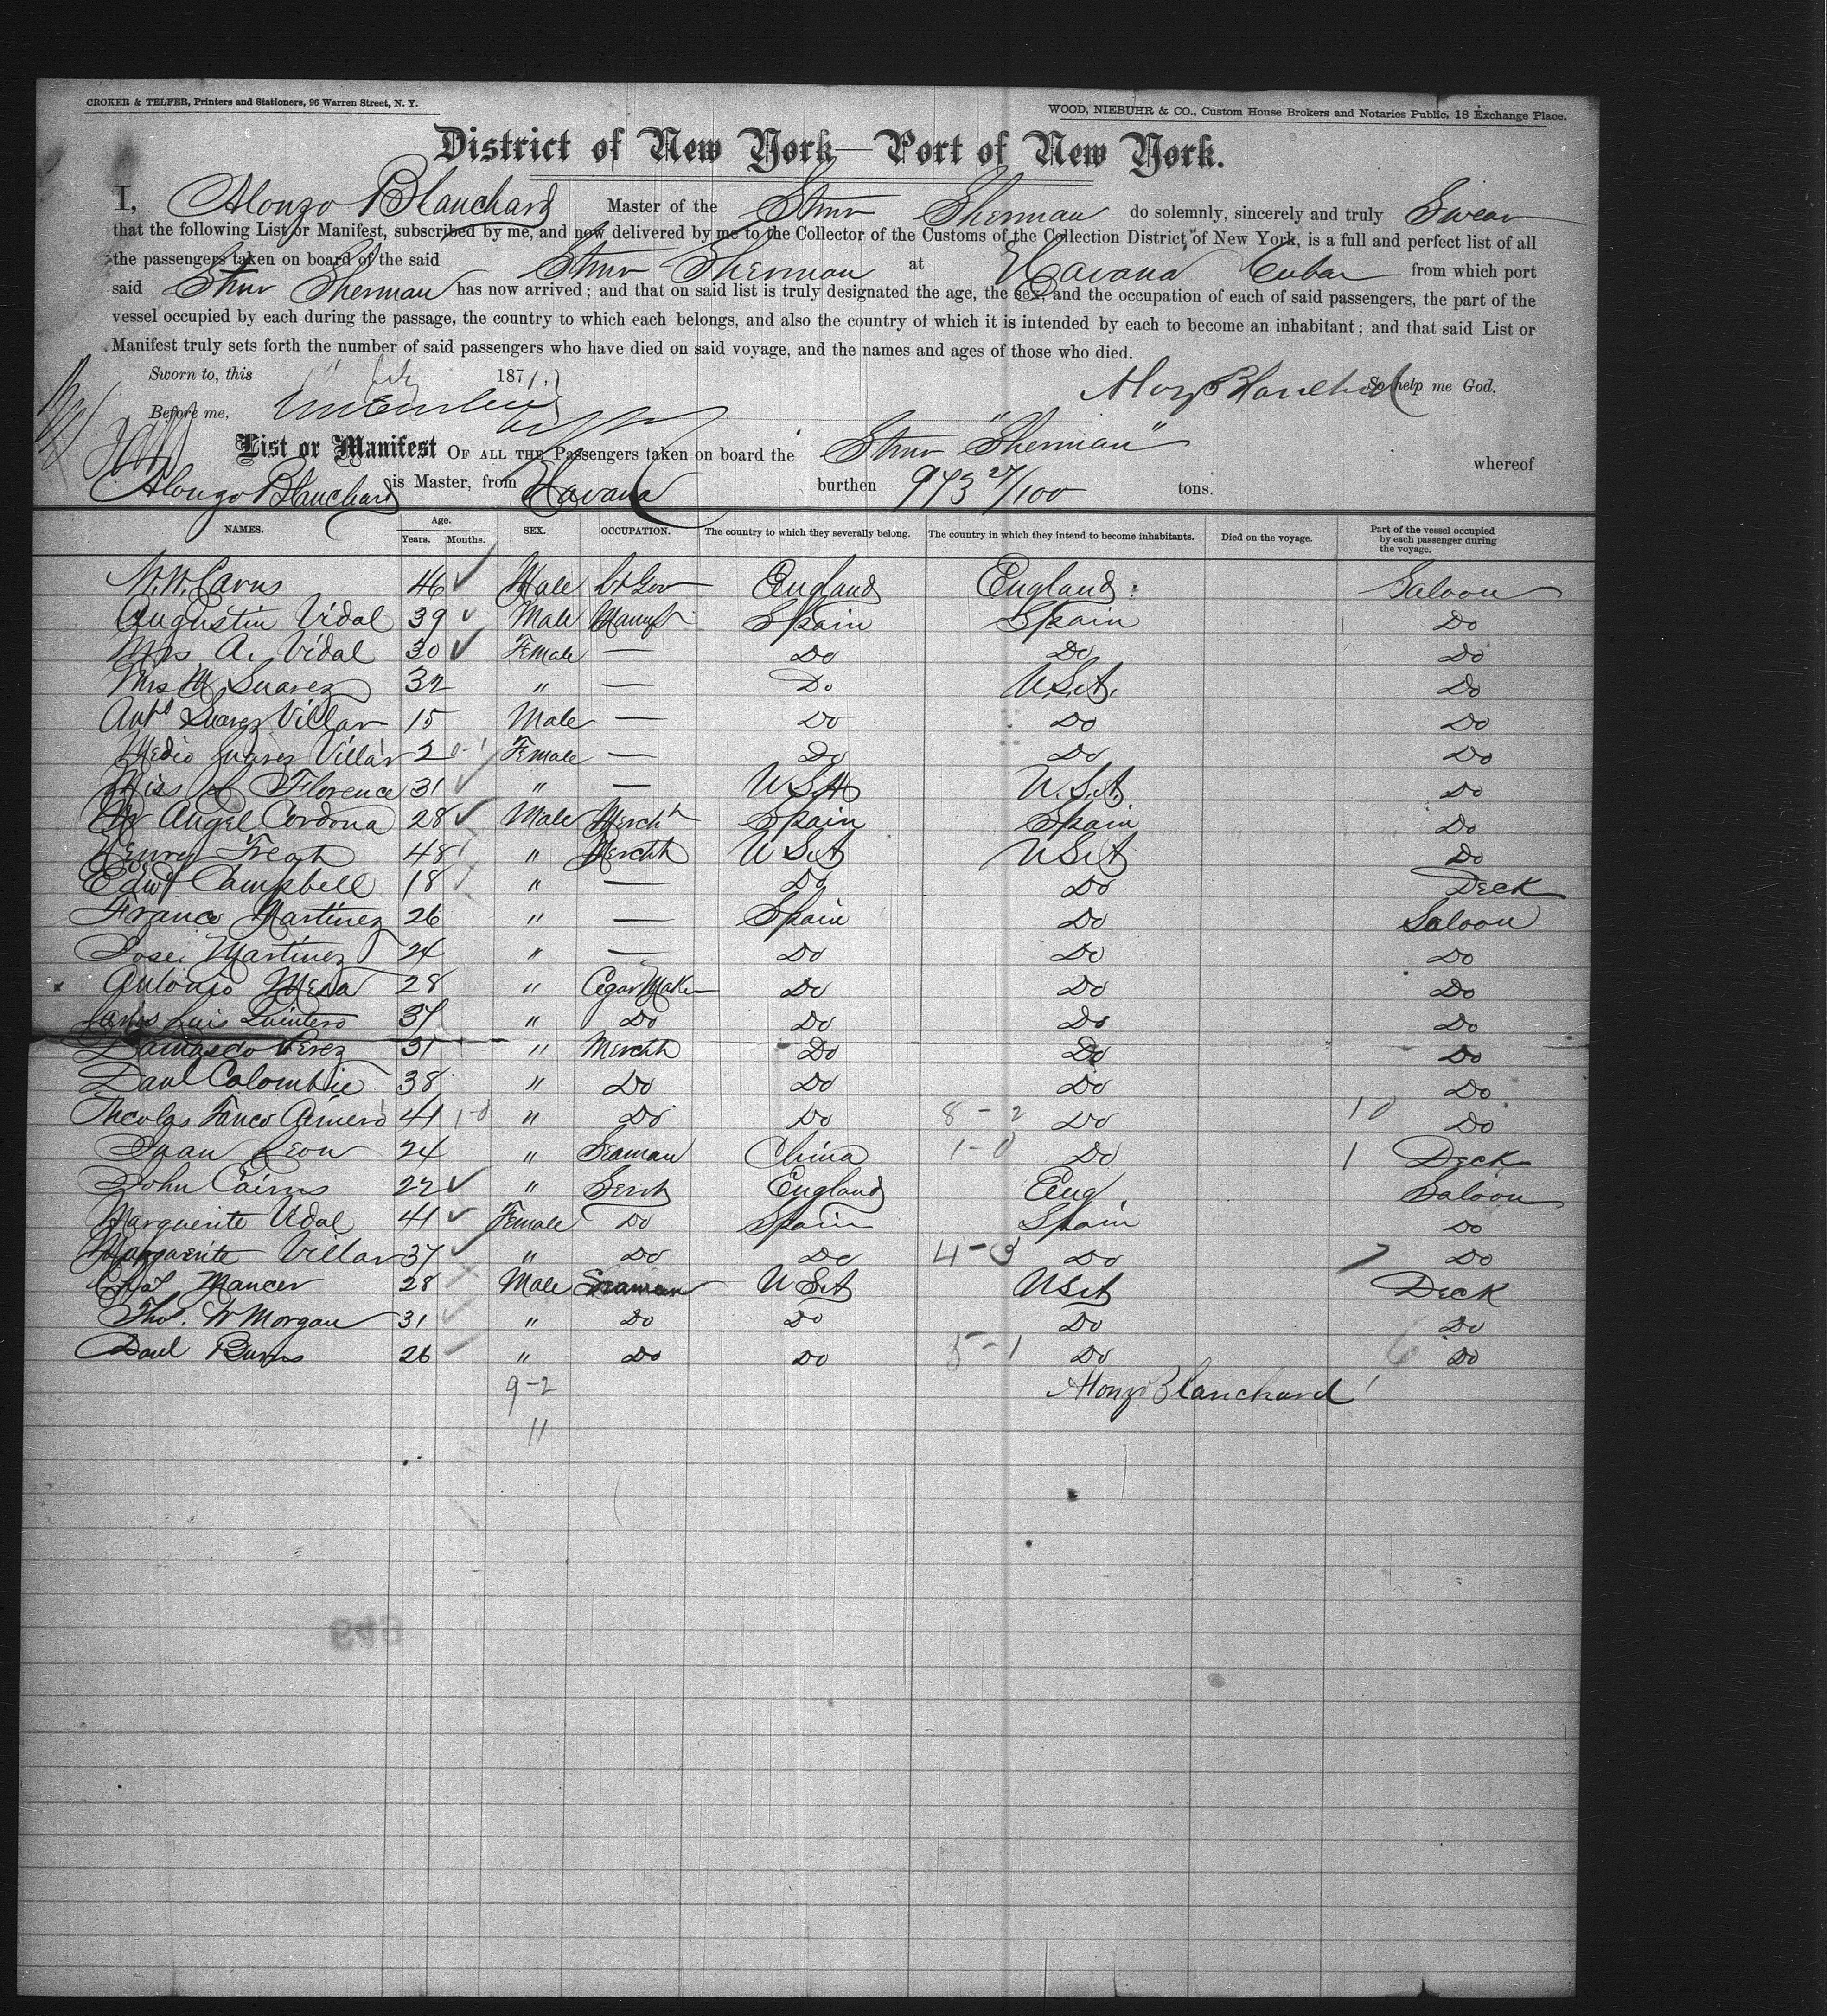 CROKER & TELFER, Printers and Stationers, 96 Warren Street, N. Y.
WOOD, NIEBUHR & CO., Custom House Brokers and Notaries Public, 18 Exchange Place.
District of New York—Port of New York.
I, Alonzo Blanchard Master of the Stmr Sherman do solemnly, sincerely and truly Swear
that the following List or Manifest, subscribed by me, and now delivered by me to the Collector of the Customs of the Collection District of New York, is a full and perfect list of all
the passengers taken on board of the said Stmr Sherman at Havana Cuba from which port
said Stmr Sherman has now arrived; and that on said list is truly designated the age, the sex, and the occupation of each of said passengers, the part of the
vessel occupied by each during the passage, the country to which each belongs, and also the country of which it is intended by each to become an inhabitant; and that said List or
Manifest truly sets forth the number of said passengers who have died on said voyage, and the names and ages of those who died.
Sworn to, this July 1871. So help me God.
Alonzo Blanchard
Before me,
List or Manifest OF ALL THE Passengers taken on board the Stmr "Sherman" whereof
Alonzo Blanchard is Master, from Havana burthen 973 27/100 tons.
NAMES. Age. Years. Months. SEX. OCCUPATION. The country to which they severally belong. The country in which they intend to become inhabitants. Died on the voyage. Part of the vessel occupied by each passenger during the voyage.
W. W. Carns 46 Male Lt Gov England England Saloon
Augustin Vidal 39 Male Manuft Spain Spain Do
Mrs A. Vidal 30 Female — Do Do Do
Mrs M Suarez 32 " — Do U.S.A. Do
Anto Suarez Villar 15 Male — Do Do Do
Medio Suarez Villar 2 0-1 Female — Do Do Do
Miss Florence 31 " — USA U.S.A. Do
Mr Angel Cordona 28 Male Mercht Spain Spain Do
Henry 48 " Mercht USA USA Do
Edwd Campbell 18 " — Do Do Deck
Franco Martinez 26 " — Spain Do Saloon
Jose Martinez 24 " — Do Do Do
Antonio Mesa 28 " Cigar Maker Do Do Do
Carlos Luis Quintero 37 " Do Do Do Do
Damasco Perez 31 " Mercht Do Do Do
Paul Colombie 38 " Do Do Do Do
41 1-0 " Do Do 8-2 Do 10 Do
Juan Leon 24 " Seaman China 1-0 Do 1 Deck
John Cairns 22 " Servt England Eng. Saloon
Marguerite Vidal 41 Female Do Spain Spain Do
Marguerite Villar 37 " Do Do 4-3 Do 7 Do
Chas Mancer 28 Male Seaman USA USA Deck
Tho. W Morgan 31 " Do Do Do Do
Paul Burns 26 " Do Do 5-1 Do 6 Do
9-2 Alonzo Blanchard
11